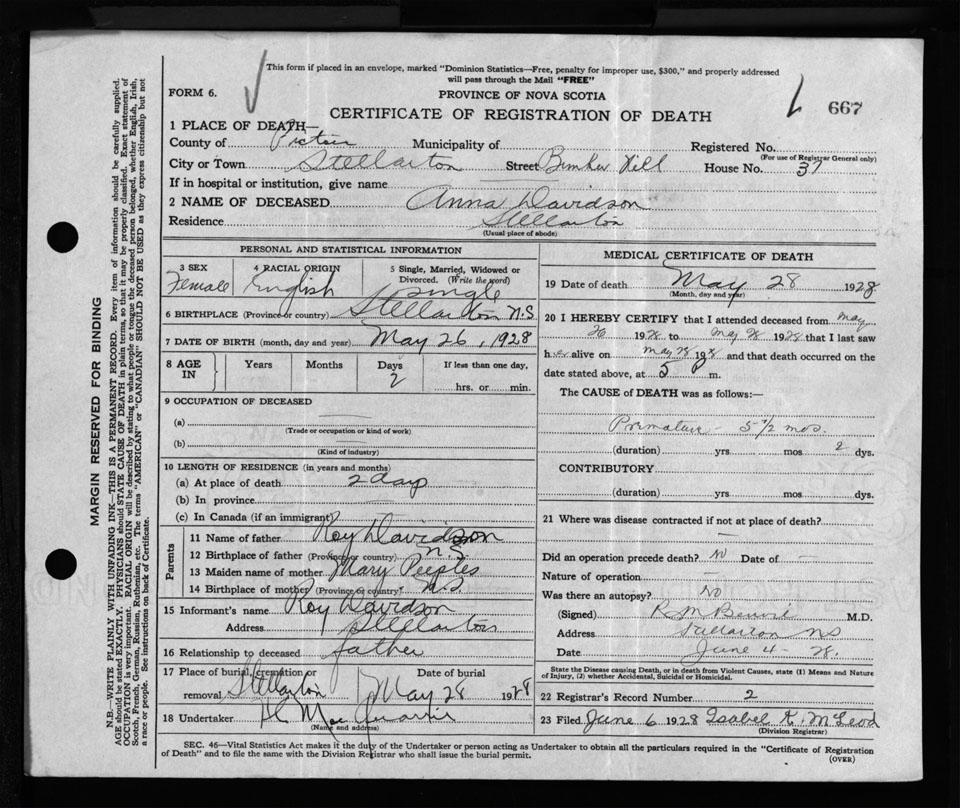 This form if placed in an envelope, marked "Dominion Statistics—Free, penalty for improper use, $300," and properly addressed
will pass through the Mail "FREE"
FORM 6.
PROVINCE OF NOVA SCOTIA
667
CERTIFICATE OF REGISTRATION OF DEATH
1 PLACE OF DEATH—
County of Pictou Municipality of Registered No.
(For use of Registrar General only)
City or Town Stellarton Street Bunker Hill House No. 37
If in hospital or institution, give name
2 NAME OF DECEASED Anna Davidson
Residence Stellarton
(Usual place of abode)
PERSONAL AND STATISTICAL INFORMATION
3 SEX 4 RACIAL ORIGIN 5 Single, Married, Widowed or Divorced. (Write the word)
Female English Single
6 BIRTHPLACE (Province or country) Stellarton N.S
7 DATE OF BIRTH (month, day and year) May 26, 1928
8 AGE IN Years Months Days If less than one day,
2 hrs. or min.
9 OCCUPATION OF DECEASED
(a)
(Trade or occupation or kind of work)
(b)
(Kind of industry)
10 LENGTH OF RESIDENCE (in years and months)
(a) At place of death 2 days
(b) In province
(c) In Canada (if an immigrant)
Parents
11 Name of father Roy Davidson
12 Birthplace of father (Province or country) N.S.
13 Maiden name of mother Mary Peeples
14 Birthplace of mother (Province or country) N.S.
15 Informant's name Roy Davidson
Address Stellarton
16 Relationship to deceased father
17 Place of burial, cremation or removal Stellarton Date of burial May 28 1928
18 Undertaker
(Name and address)
MEDICAL CERTIFICATE OF DEATH
19 Date of death May 28 1928
(Month, day and year)
20 I HEREBY CERTIFY that I attended deceased from May
1928 to May 28 1928 that I last saw
h er alive on May 28 1928 and that death occurred on the
date stated above, at 5 P m.
The CAUSE of DEATH was as follows:—
Premature - 5 1/2 mos.
(duration) yrs mos 2 dys.
CONTRIBUTORY
(duration) yrs. mos. dys.
21 Where was disease contracted if not at place of death?
Did an operation precede death? No Date of
Nature of operation
Was there an autopsy? No
(Signed) R M M.D.
Address Stellarton NS
Date June 4 - 28.
State the Disease causing Death, or in death from Violent Causes, state (1) Means and Nature of Injury, (2) whether Accidental, Suicidal or Homicidal.
22 Registrar's Record Number 2
23 Filed June 6 1928 Isabel K. McLeod
(Division Registrar)
SEC. 46—Vital Statistics Act makes it the duty of the Undertaker or person acting as Undertaker to obtain all the particulars required in the "Certificate of Registration
of Death" and to file the same with the Division Registrar who shall issue the burial permit.
(OVER)
MARGIN RESERVED FOR BINDING
N.B.—WRITE PLAINLY WITH UNFADING INK—THIS IS A PERMANENT RECORD. Every item of information should be carefully supplied.
AGE should be stated EXACTLY. PHYSICIANS should STATE CAUSE OF DEATH in plain terms, so that it may be properly classified. Exact statement of
OCCUPATION is very important. RACIAL ORIGIN will be described by stating to what people or tongue the deceased person belonged, whether English, Irish,
Scotch, French, German, Russian, Ruthenian, etc. The terms "AMERICAN" or "CANADIAN" SHOULD NOT BE USED as they express citizenship but not
a race or people. See instructions on back of Certificate.